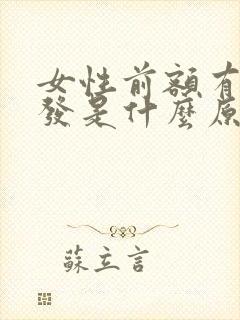 女性前額有
發是什麼原
蘇立言